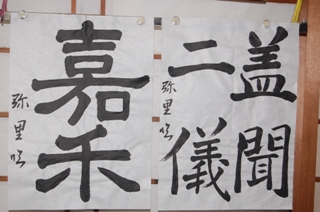 盖聞
二儀
弥里咲
嘉禾
弥里咲